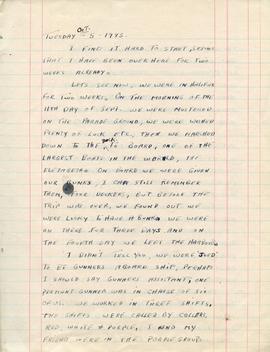 Oct.
Tuesday - 5 - 1943.
I find it hard to start, seeing
that I have been over here for two
weeks already.
Lets see now, we were in Halifax
for two weeks. On the morning of the
11th day of Sept. we were mustered
on the parade ground, we were wished
plenty of luck etc., then we marched
down to the to board, one of the
largest boats in the world, the
on board we were given
our bunks. I can still remember
them, four deckers, but before the
trip was over, we found out we
were lucky to have a bunk. We were
on there for three days and on
the fourth day we left the harbour.
I didn't tell you, we were
to be gunners aboard ship, perhaps
I should say gunners assistant, one
permanent gunner was in charge of six
of us. We worked in three shifts,
the shifts were called by colors,
red, white & purple, I and my
friend were in the purple group.